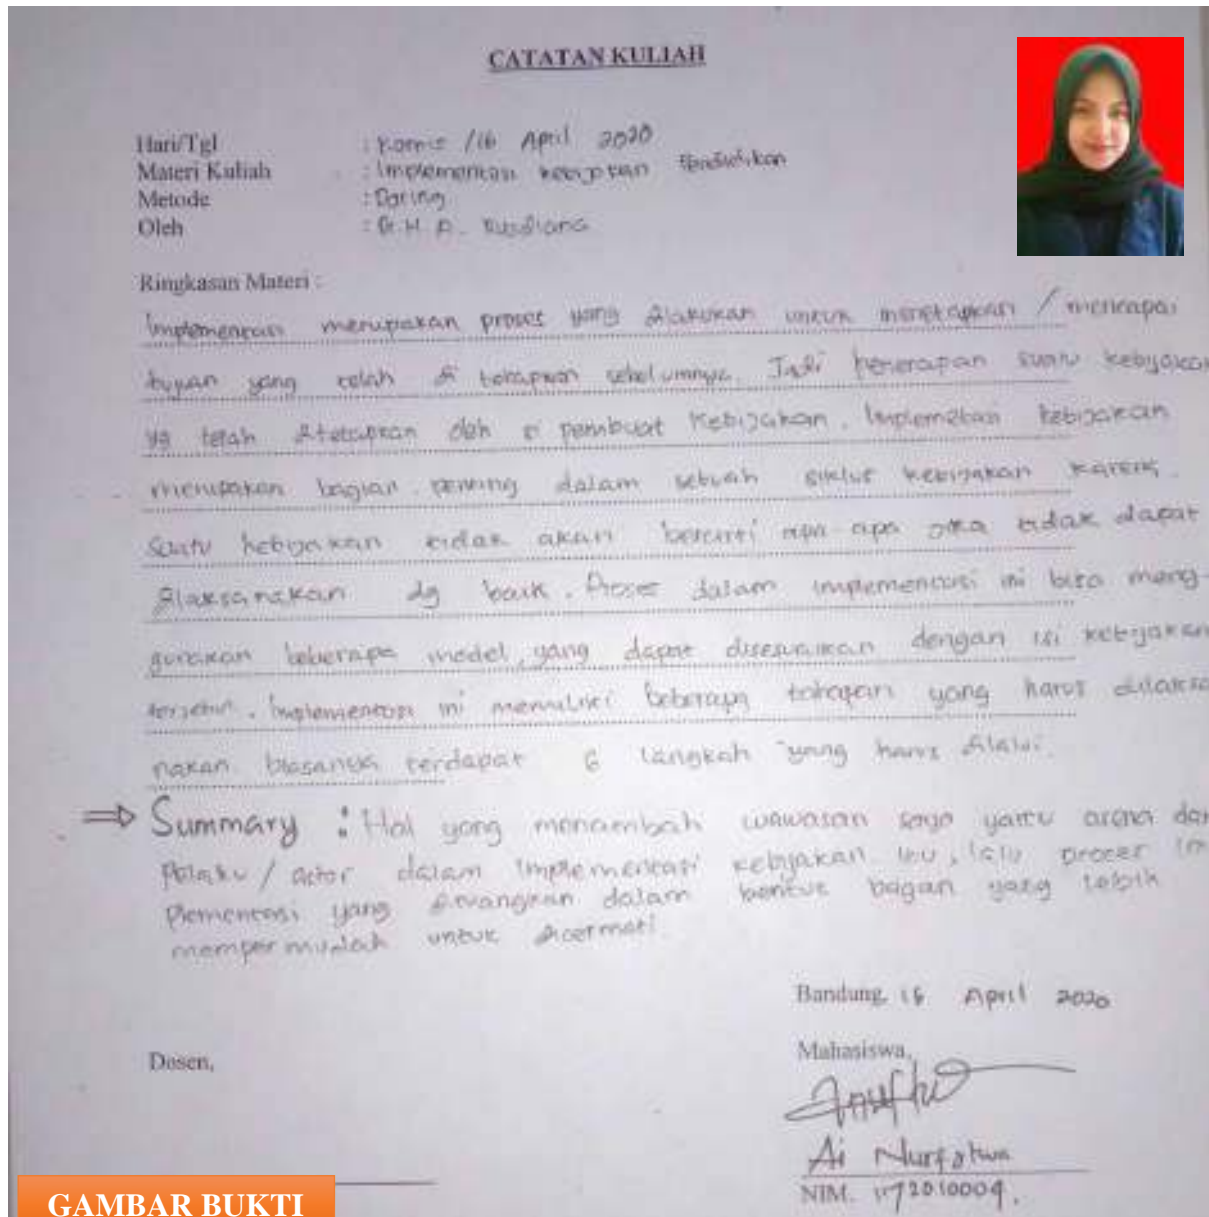 CATATAN KULIAH
Hari/Tgl : Kamis /16 April 2020
Materi Kuliah : Implementasi kebijakan Pendidikan
Metode : Daring
Oleh : Dr. H. A. Rusdiana
Ringkasan Materi :
Implementasi merupakan proses yang dilakukan untuk menetapkan / mencapai
tujuan yang telah di tetapkan sebelumnya. Jadi penerapan suatu kebijakan
yg telah ditetapkan oleh si pembuat kebijakan. Implemetasi kebijakan
merupakan bagian penting dalam sebuah siklus kebijakan karena
suatu kebijakan tidak akan berarti apa-apa jika tidak dapat
dilaksanakan dg baik. Proses dalam implementasi ini bisa meng-
gunakan beberapa model, yang dapat disesuaikan dengan isi kebijakan
tersebut. Implementasi ini memiliki beberapa tahapan yang harus dilaksa
nakan biasanya terdapat 6 langkah yang harus dilalui.
⇒ Summary : Hal yang menambah wawasan saya yaitu arena dan
Pelaku / actor dalam implementasi kebijakan itu, lalu proses im
plementasi yang dituangkan dalam bentuk bagan yang lebih
mempermudah untuk dicermati.
Bandung, 16 April 2020
Dosen,
Mahasiswa,
Ai Nurfatwa
NIM. 1172010009.
GAMBAR BUKTI